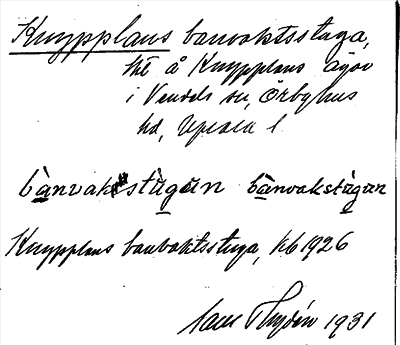 Knypplans banvaktsstuga,
lht å Knypplans ägor
i Vendels sn, Örbyhus
hd, Upsala l.
bànvaktstùgan bànvakstùgan
Knypplans banvaktsstuga, kb 1926
1931